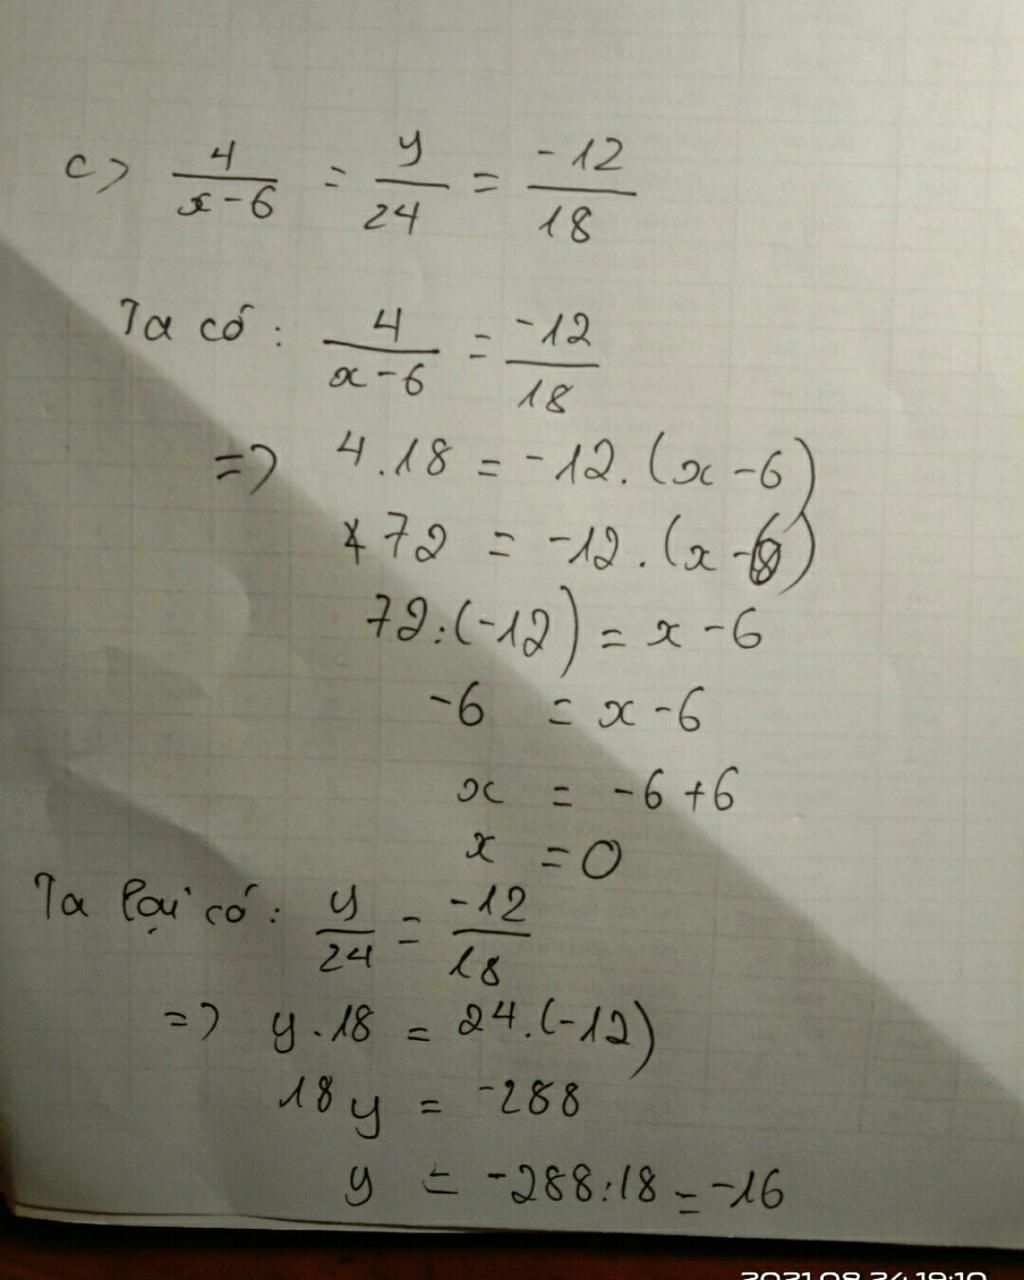 c> 4/(x-6) = y/24 = -12/18
Ta có: 4/(x-6) = -12/18
=> 4.18 = -12.(x-6)
72 = -12.(x-6)
72:(-12) = x-6
-6 = x-6
x = -6+6
x = 0
Ta lại có: y/24 = -12/18
=> y.18 = 24.(-12)
18y = -288
y = -288:18 = -16